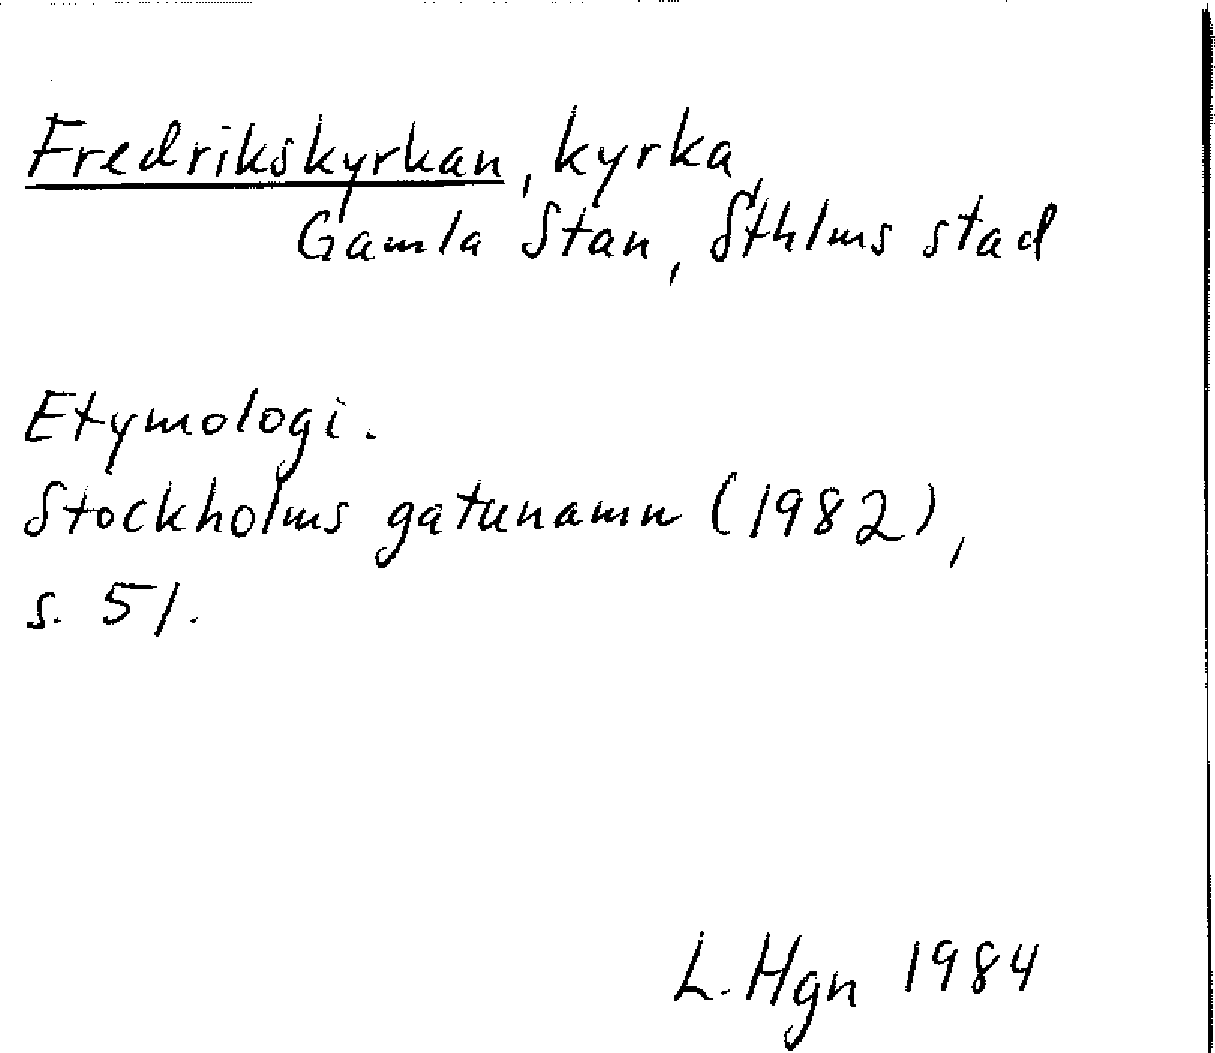 Fredrikskyrkan, kyrka,
Gamla Stan, Sthlms stad
Etymologi.
Stockholms gatunamn (1982),
s. 51.
L. Hgn 1984